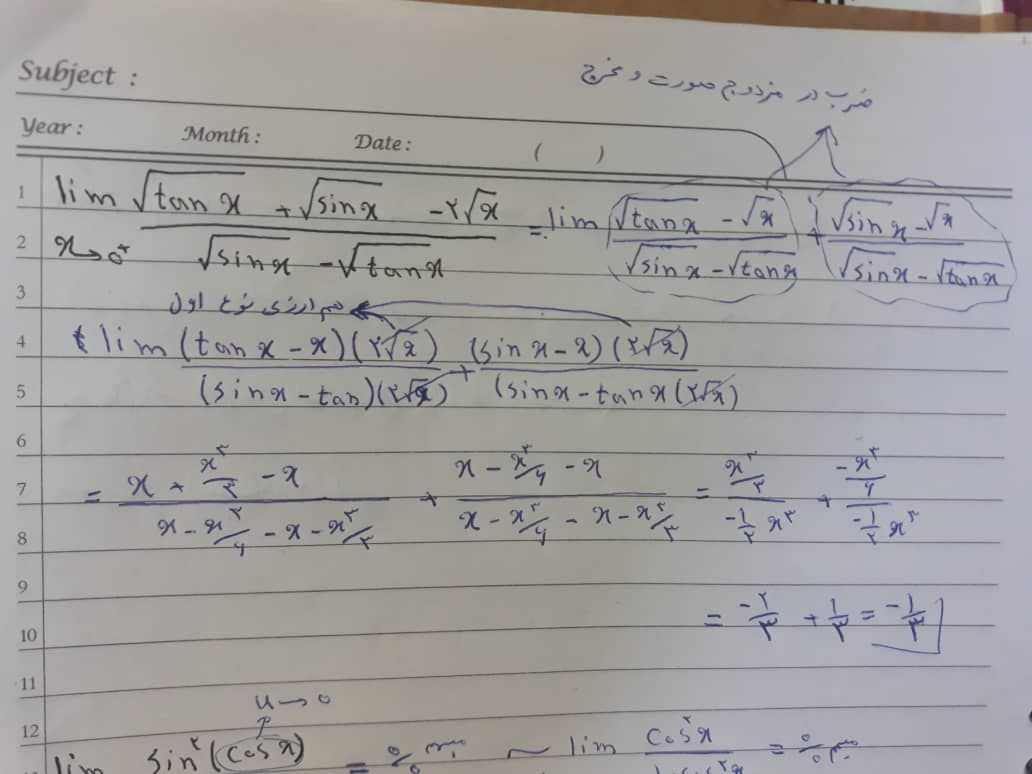 Subject :
ضرب در مزدوج صورت و مخرج
Year : Month : Date : ( )
1
lim √tan x + √sin x - ۲√x / √sin x - √tan x = lim √tan x - √x / √sin x - √tan x + √sin x - √x / √sin x - √tan x
2
x→0⁺
3
هم ارزی نوع اول
4
lim (tan x - x)(۲√x) / (sin x - tan)(۲√x) + (sin x - x)(۲√x) / (sin x - tan x (۲√x)
5
6
7
= x + x³/۳ - x / x - x³/۶ - x - x³/۳ + x - x³/۶ - x / x - x³/۶ - x - x³/۳ = x³/۳ / -۱/۲ x³ + -x³/۶ / -۱/۲ x³
8
9
= -۲/۳ + ۱/۳ = -۱/۳
10
11
u → 0
12
lim sin²(cos x) = ~ lim cos²x =